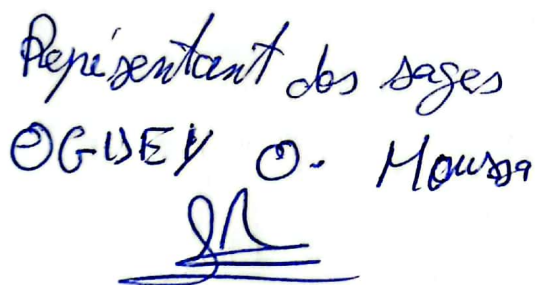 Représentant des sages
OGUSEY O. Moussa